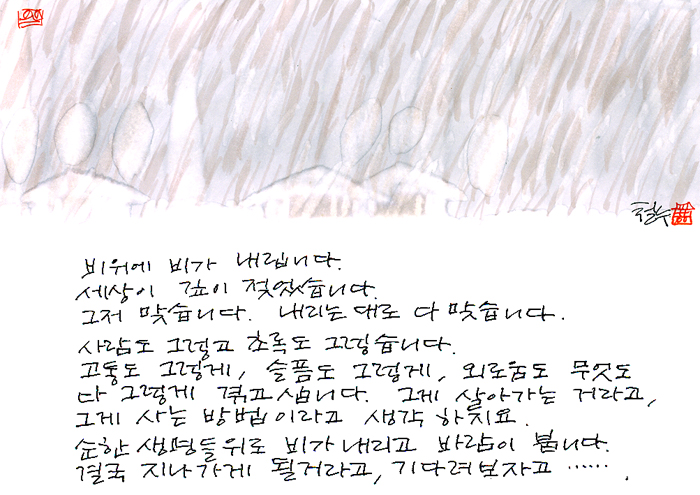 비위에 비가 내립니다.
세상이 깊이 젖었습니다.
그저 맞습니다. 내리는대로 다 맞습니다.
사람도 그렇고 초록도 그렇습니다.
고통도 그렇게, 슬픔도 그렇게, 외로움도 무엇도
다 그렇게 겪고 삽니다. 그게 살아가는 거라고,
그게 사는 방법이라고 생각 하지요.
순한 생명들위로 비가 내리고 바람이 붑니다.
결국 지나가게 될거라고, 기다려보자고 …… .